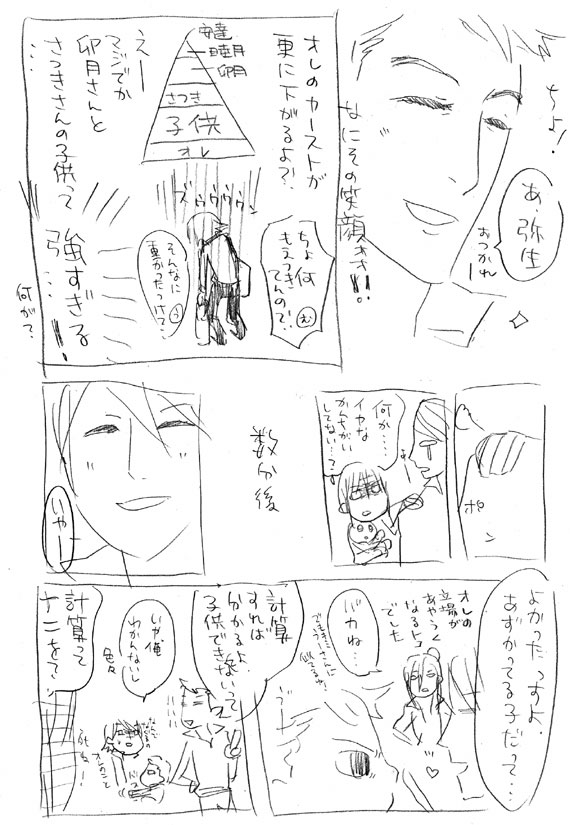 ちょ!
あ、弥生
おつかれー
なにその笑顔
オレのカーストが
更に下がるよ?!
安達
睦月
卯月
さつき
子供
オレ
えー
マジでか
卯月さんと
さつきさんの子供って
…
強すぎる
…!!
何が?
ズゥゥウウン
ちょ何
もえつき
てんの?!
む
そんなに
重かったっけ?…
う
ポン
何か…
イヤな
かんちがい
してない…?
数分後
いやー
よかったっすよ、
あずかってる子だって…
オレの
立場が
あやうく
なるトコ
でした
バカね…
計算
すれば
わかるよ、
子供できないって
いや俺
わかんないし
色々
計算って
ナニを?
オレのこと